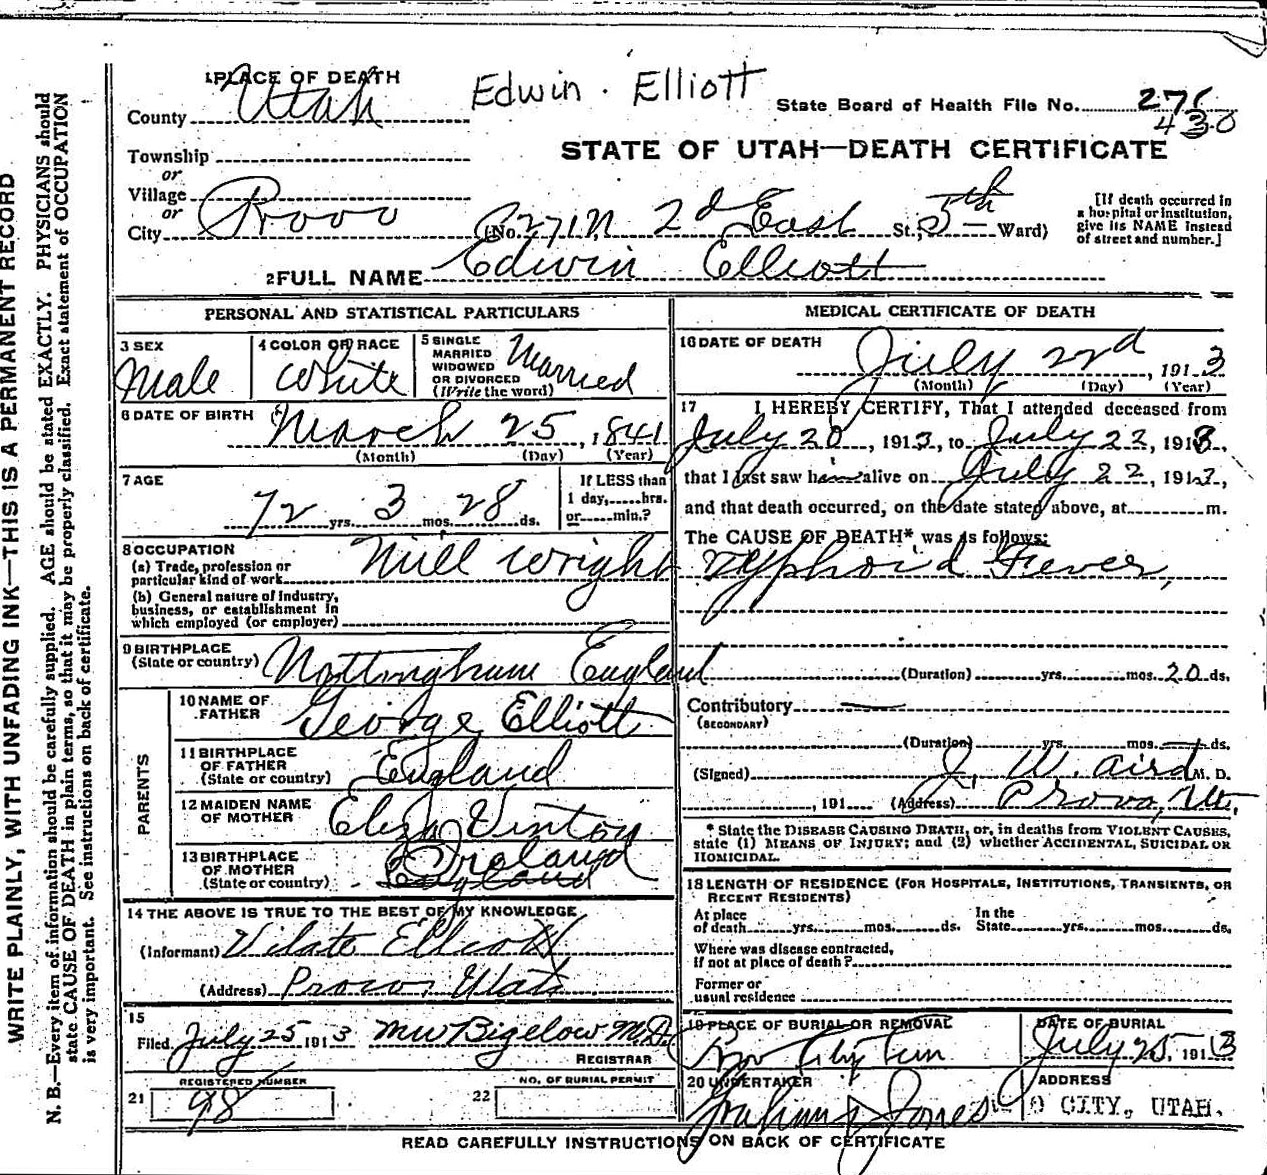 1 PLACE OF DEATH
Edwin. Elliott
State Board of Health File No. 271
430
County Utah
STATE OF UTAH—DEATH CERTIFICATE
Township
or
Village
or
City Provo (No. 271 N 2d East St., 5th Ward)
[If death occurred in a hospital or institution, give its NAME instead of street and number.]
2 FULL NAME Edwin Elliott
PERSONAL AND STATISTICAL PARTICULARS
3 SEX Male
4 COLOR OR RACE White
5 SINGLE MARRIED WIDOWED OR DIVORCED (Write the word) Married
6 DATE OF BIRTH March 25, 1841
(Month) (Day) (Year)
7 AGE 72 yrs. 3 mos. 28 ds.
If LESS than 1 day, hrs. or min.?
8 OCCUPATION
(a) Trade, profession or particular kind of work Mill wright
(b) General nature of industry, business, or establishment in which employed (or employer)
9 BIRTHPLACE (State or country) Nottingham England
PARENTS
10 NAME OF FATHER George Elliott
11 BIRTHPLACE OF FATHER (State or country) England
12 MAIDEN NAME OF MOTHER Eliza Vinton
13 BIRTHPLACE OF MOTHER (State or country) Ireland England
14 THE ABOVE IS TRUE TO THE BEST OF MY KNOWLEDGE
(Informant) Vilate Elliott
(Address) Provo, Utah
15
Filed July 25 1913 M W Bigelow M.D.
REGISTRAR
21 REGISTERED NUMBER 98
22 NO. OF BURIAL PERMIT
MEDICAL CERTIFICATE OF DEATH
16 DATE OF DEATH July 22d, 1913
(Month) (Day) (Year)
17 I HEREBY CERTIFY, That I attended deceased from
July 20, 1913, to July 22, 1913,
that I last saw him alive on July 22, 1913,
and that death occurred, on the date stated above, at m.
The CAUSE OF DEATH* was as follows:
Typhoid Fever,
(Duration) yrs. mos. 20 ds.
Contributory —
(SECONDARY)
(Duration) yrs. mos. — ds.
(Signed) J. W. Aird M. D.
, 191 (Address) Provo, Ut.
* State the DISEASE CAUSING DEATH, or, in deaths from VIOLENT CAUSES,
state (1) MEANS OF INJURY; and (2) whether ACCIDENTAL, SUICIDAL OR
HOMICIDAL.
18 LENGTH OF RESIDENCE (FOR HOSPITALS, INSTITUTIONS, TRANSIENTS, OR
RECENT RESIDENTS)
At place of death yrs. mos. ds. In the State yrs. mos. ds.
Where was disease contracted,
if not at place of death?
Former or
usual residence
19 PLACE OF BURIAL OR REMOVAL
DATE OF BURIAL July 25, 1913
20 UNDERTAKER
Jones
ADDRESS
O CITY, UTAH.
READ CAREFULLY INSTRUCTIONS ON BACK OF CERTIFICATE
WRITE PLAINLY, WITH UNFADING INK—THIS IS A PERMANENT RECORD
N. B.—Every item of information should be carefully supplied. AGE should be stated EXACTLY. PHYSICIANS should
state CAUSE OF DEATH in plain terms, so that it may be properly classified. Exact statement of OCCUPATION
is very important. See instructions on back of certificate.